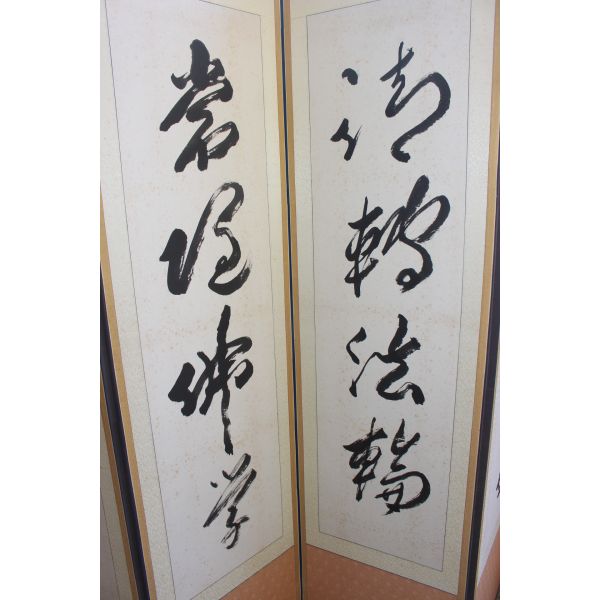 請轉法輪
常隨佛學